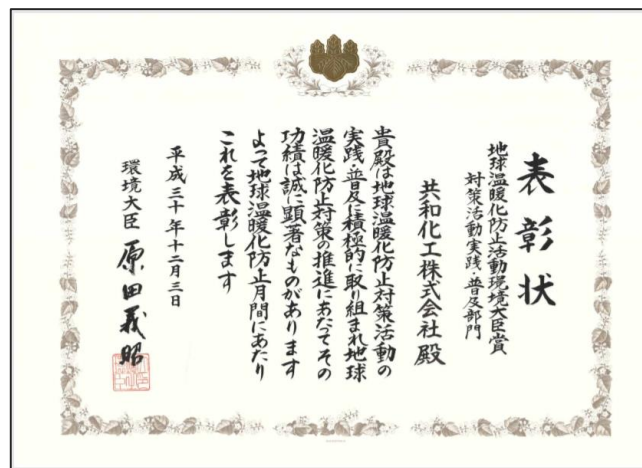 表彰状
地球温暖化防止活動環境大臣賞
対策活動実践・普及部門
共和化工株式会社殿
貴殿は地球温暖化防止対策活動の
実践・普及に積極的に取り組まれ地球
温暖化防止対策の推進にあたてその
功績は誠に顕著なものがあります
よって地球温暖化防止月間にあたり
これを表彰します
平成三十年十二月三日
環境大臣 原田義昭